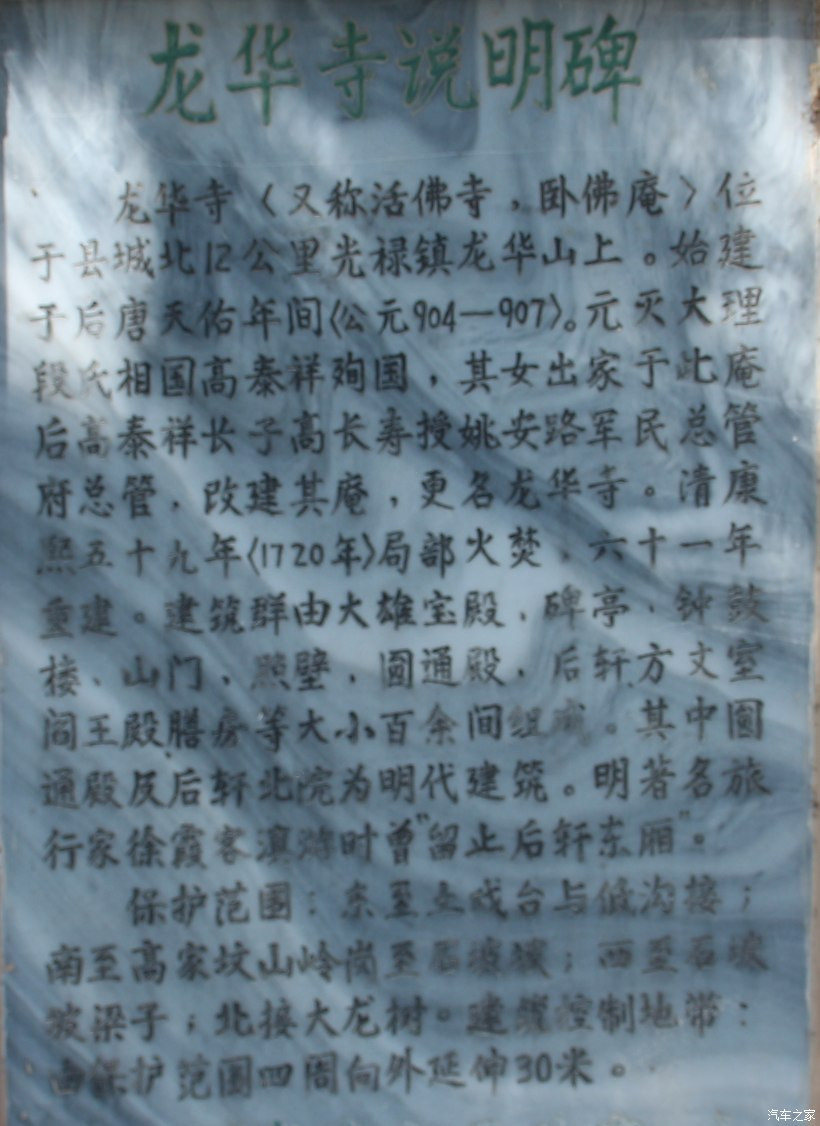 龙华寺说明碑
龙华寺〈又称活佛寺，卧佛庵〉位
于县城北12公里光禄镇龙华山上。始建
于后唐天佑年间〈公元904—907〉。元灭大理
段氏相国高泰祥殉国，其女出家于此庵
后高泰祥长子高长寿授姚安路军民总管
府总管，改建其庵，更名龙华寺。清康
熙五十九年〈1720年〉局部火焚，六十一年
重建。建筑群由大雄宝殿、碑亭、钟鼓
楼、山门、照壁、圆通殿、后轩方丈室
阎王殿膳房等大小百余间组成。其中圆
通殿及后轩北院为明代建筑。明著名旅
行家徐霞客滇游时曾"留止后轩东厢"。
保护范围：东至土戏台与低沟接；
南至高家坟山岭岗至；西至石坡
坡梁子；北接大龙树。建筑控制地带：
由保护范围四周向外延伸30米。
汽车之家